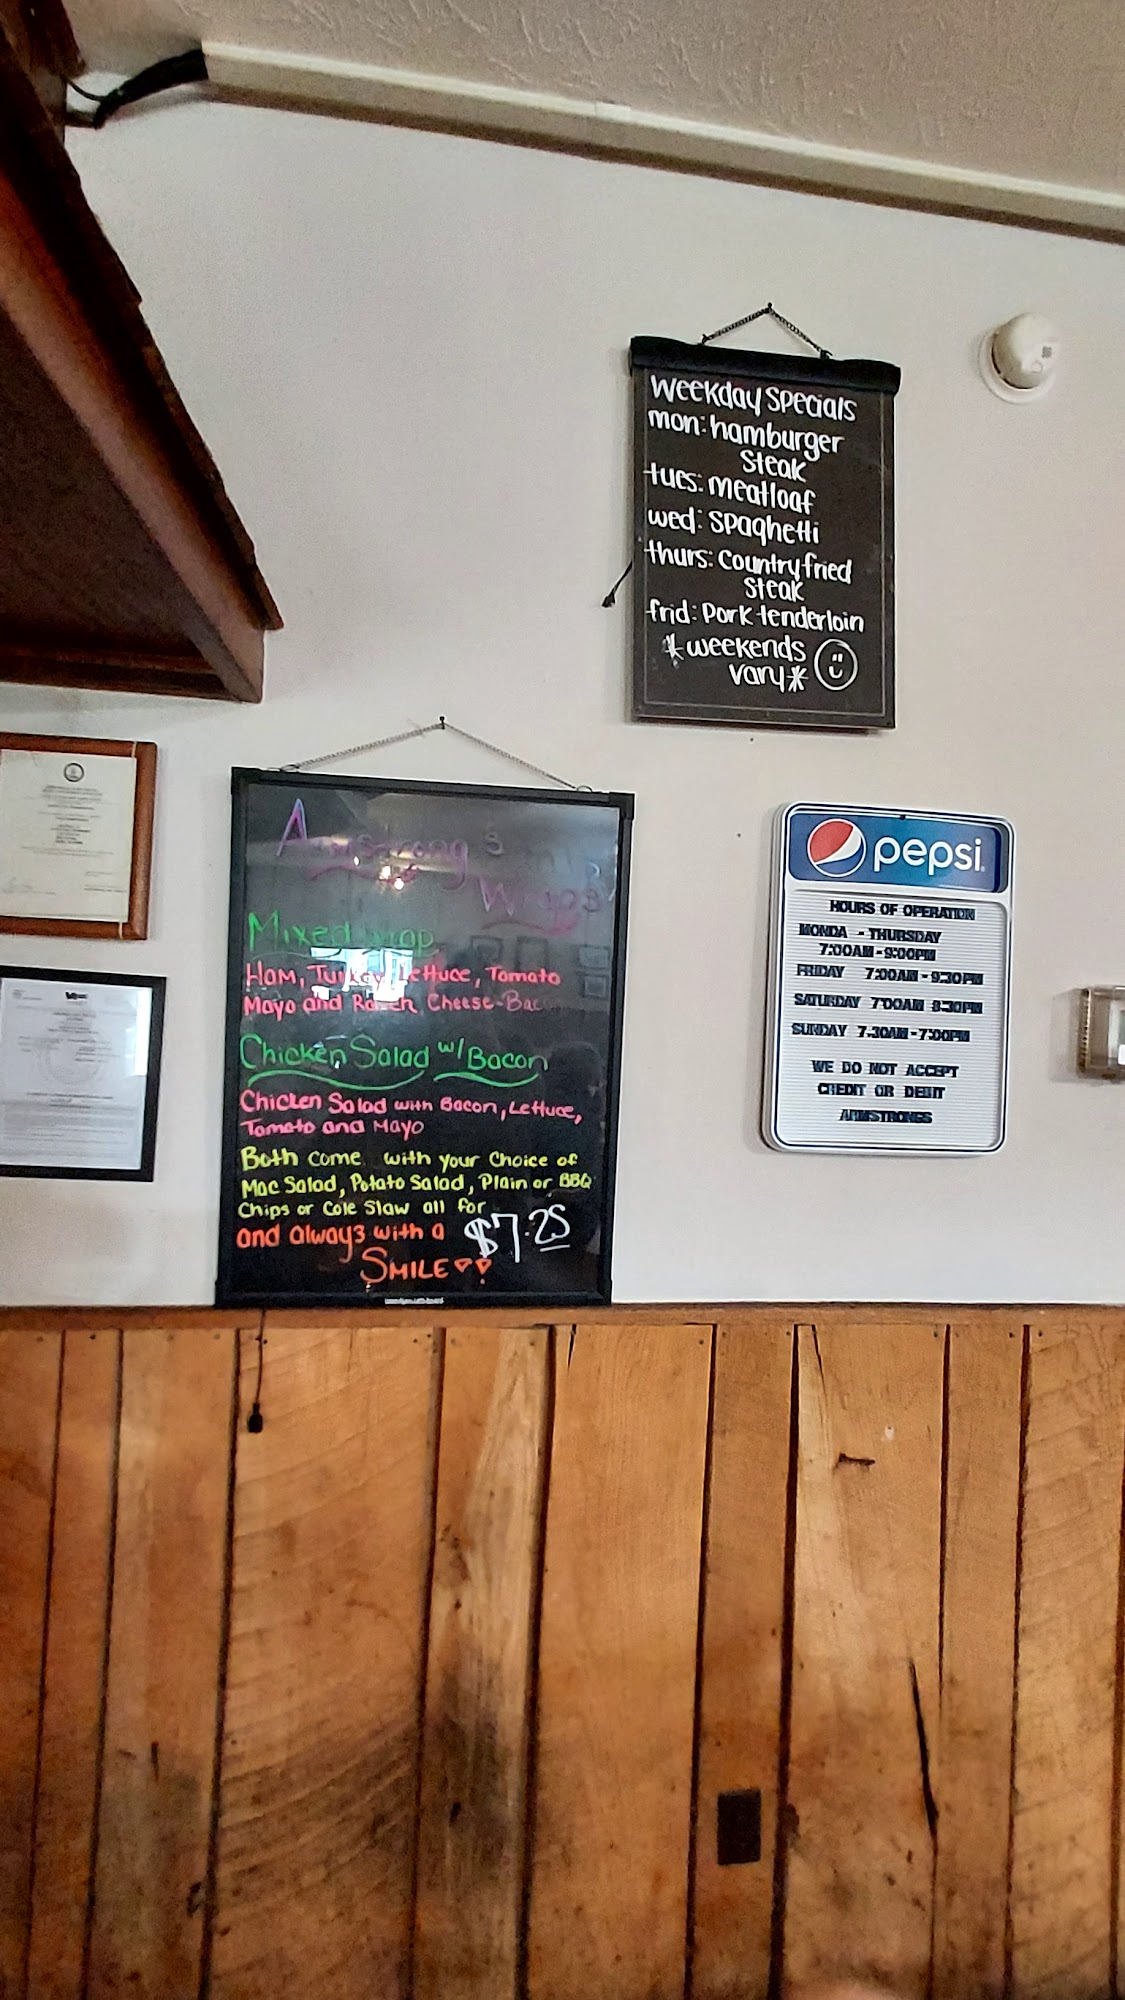 Weekday Specials
mon: hamburger
steak
tues: meatloaf
wed: spaghetti
thurs: Country fried
steak
frid: Pork tenderloin
*weekends
vary*
Armstrong's
Wraps
Mixed Wrap
Ham, Turkey, Lettuce, Tomato
Mayo and Ranch, Cheese-Bacon
Chicken Salad w/ Bacon
Chicken Salad with Bacon, Lettuce,
Tomato and Mayo
Both come with your Choice of
Mac Salad, Potato Salad, Plain or BBQ
Chips or Cole Slaw all for
$7.25
and always with a
SMILE
pepsi
HOURS OF OPERATION
MONDA - THURSDAY
7:00AM-9:00PM
FRIDAY 7:00AM - 9:30PM
SATURDAY 7'00AM 8:30PM
SUNDAY 7.30AM-7:00PM
WE DO NOT ACCEPT
CREDIT OR DEBIT
ARMSTRONGS